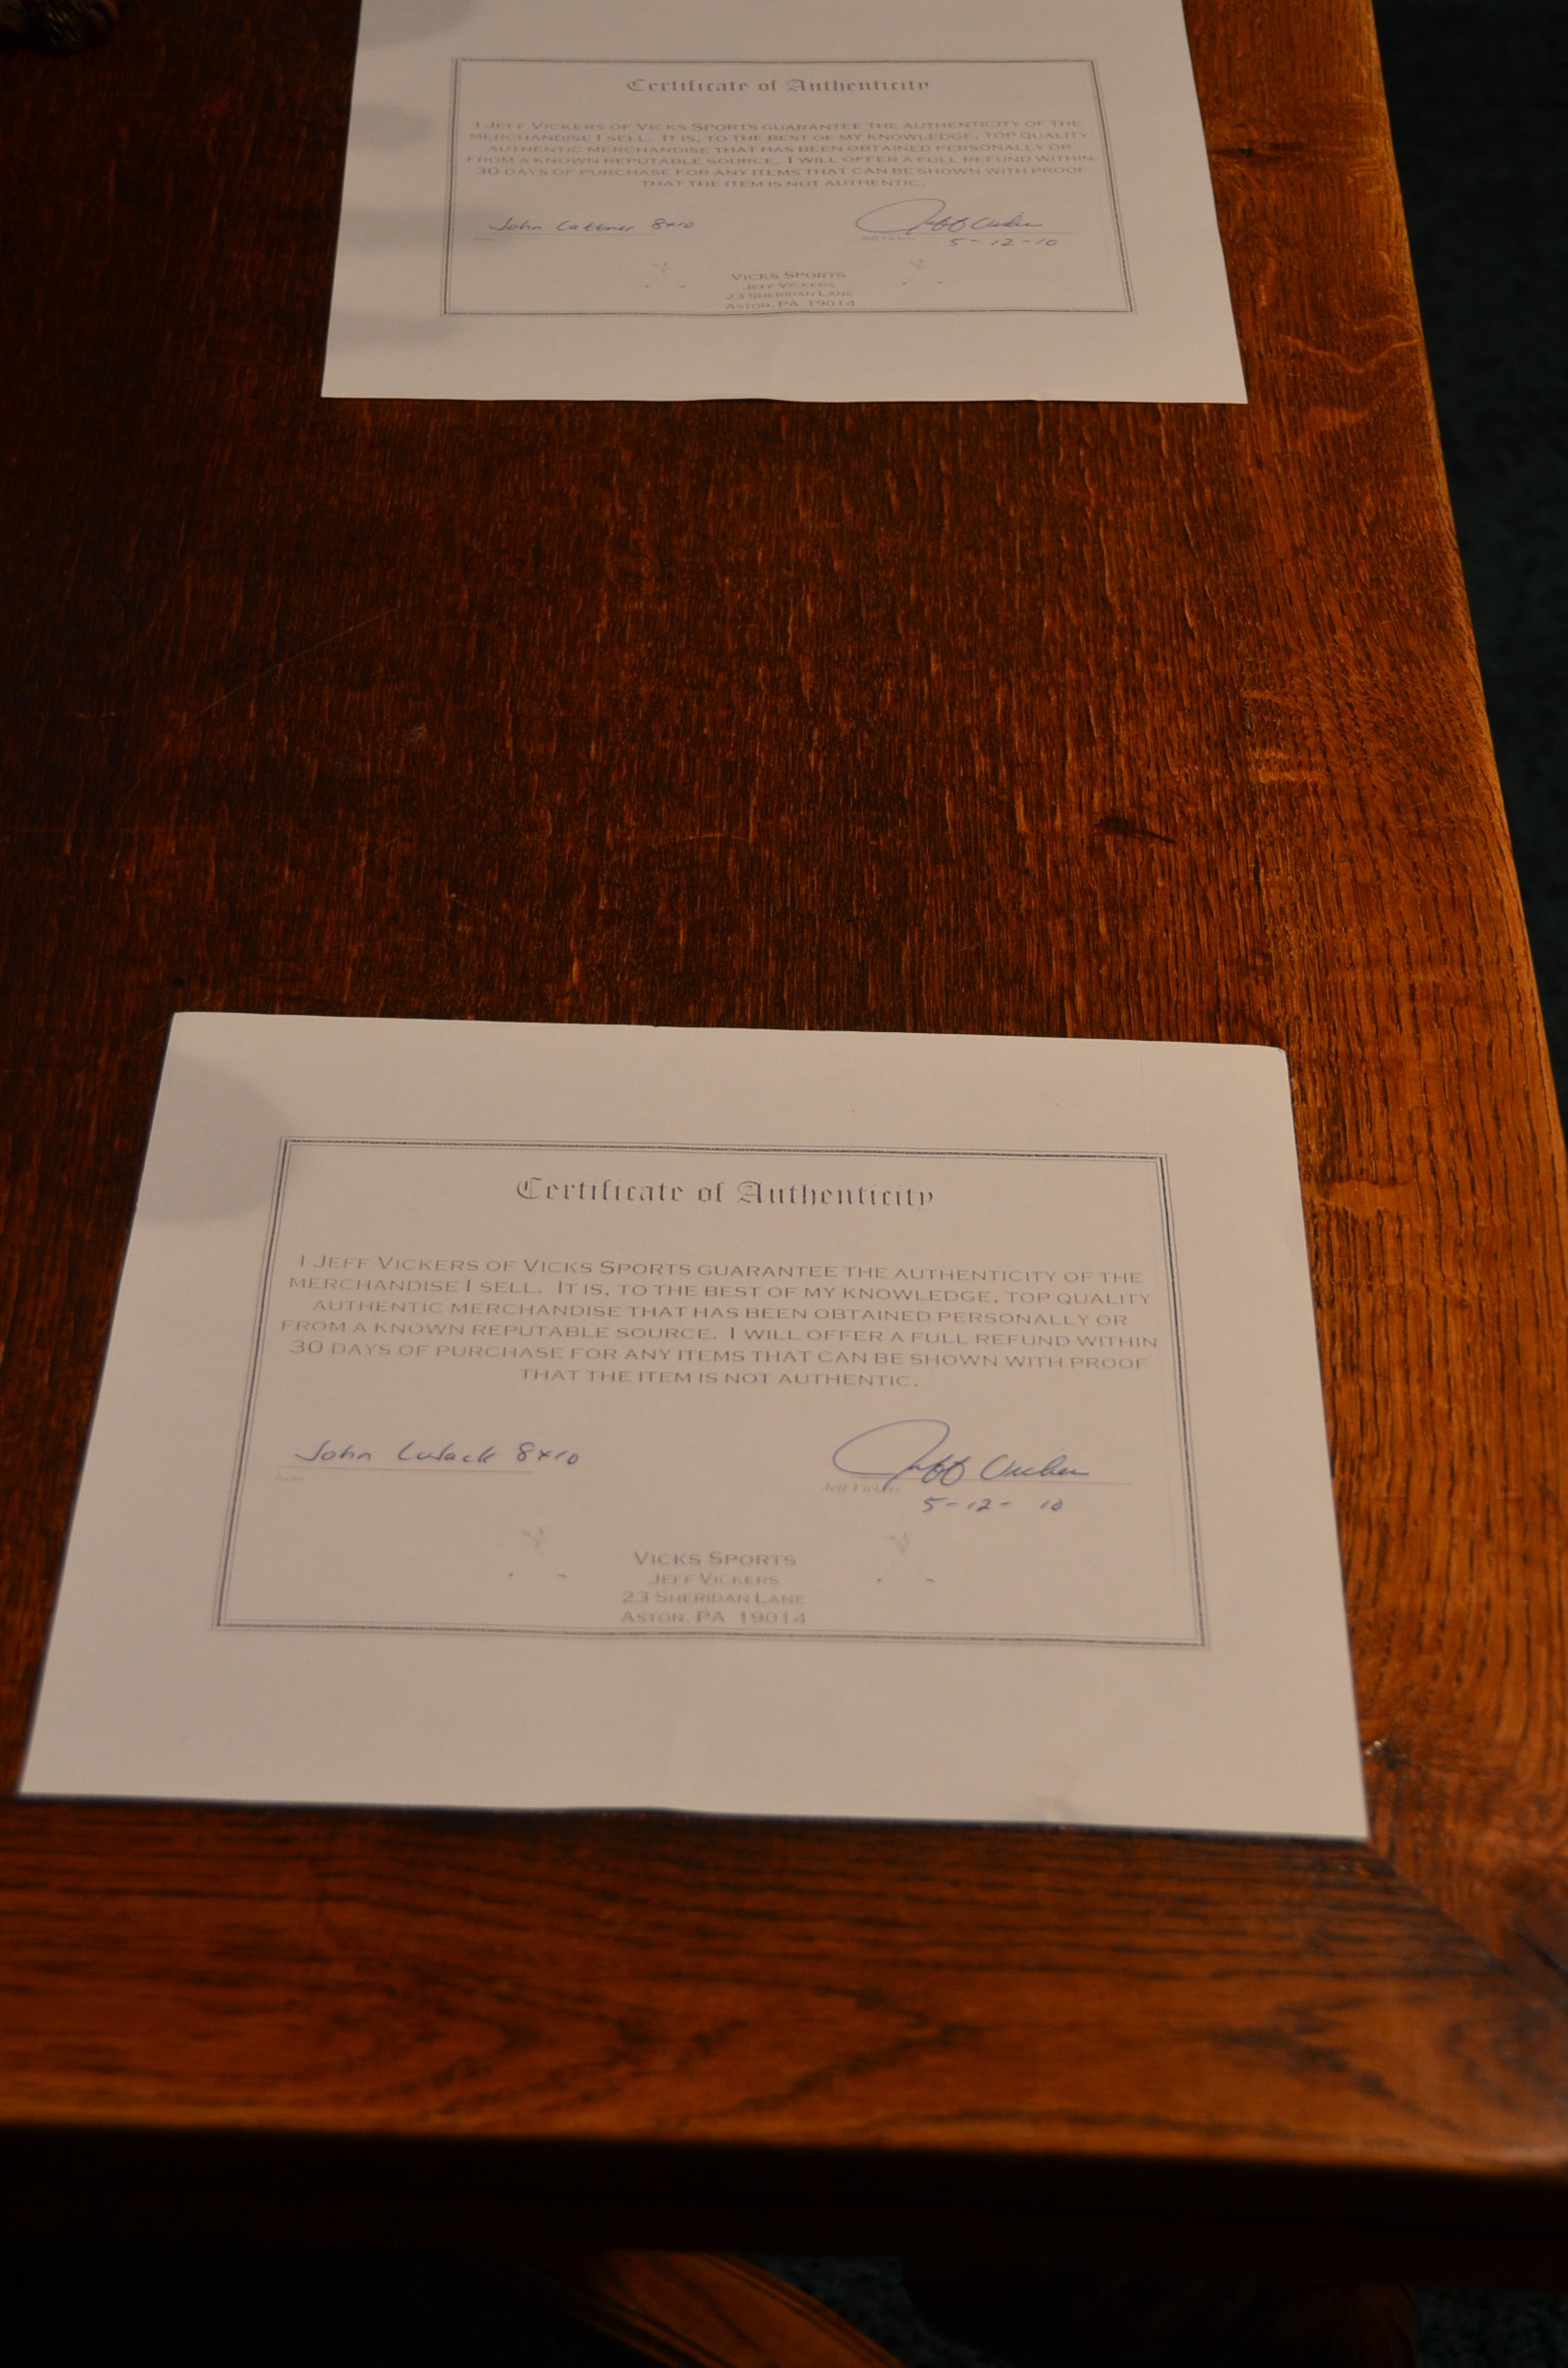 Certificate of Authenticity
I JEFF VICKERS OF VICKS SPORTS GUARANTEE THE AUTHENTICITY OF THE
MERCHANDISE I SELL. IT IS, TO THE BEST OF MY KNOWLEDGE, TOP QUALITY
AUTHENTIC MERCHANDISE THAT HAS BEEN OBTAINED PERSONALLY OR
FROM A KNOWN REPUTABLE SOURCE. I WILL OFFER A FULL REFUND WITHIN
30 DAYS OF PURCHASE FOR ANY ITEMS THAT CAN BE SHOWN WITH PROOF
THAT THE ITEM IS NOT AUTHENTIC.
John Lattner 8x10
Item
Jeff Vickers
5-12-10
VICKS SPORTS
JEFF VICKERS
23 SHERIDAN LANE
ASTON, PA 19014
Certificate of Authenticity
I JEFF VICKERS OF VICKS SPORTS GUARANTEE THE AUTHENTICITY OF THE
MERCHANDISE I SELL. IT IS, TO THE BEST OF MY KNOWLEDGE, TOP QUALITY
AUTHENTIC MERCHANDISE THAT HAS BEEN OBTAINED PERSONALLY OR
FROM A KNOWN REPUTABLE SOURCE. I WILL OFFER A FULL REFUND WITHIN
30 DAYS OF PURCHASE FOR ANY ITEMS THAT CAN BE SHOWN WITH PROOF
THAT THE ITEM IS NOT AUTHENTIC.
John Cusack 8x10
Item
Jeff Vickers
5-12-10
VICKS SPORTS
JEFF VICKERS
23 SHERIDAN LANE
ASTON, PA 19014